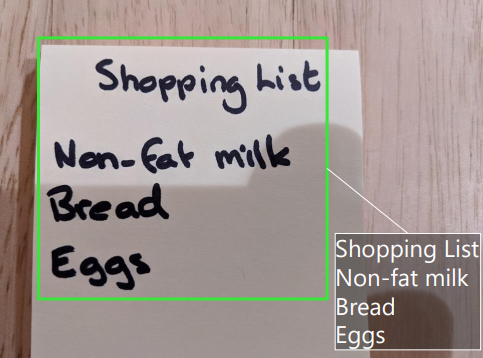 Shopping List
Non-fat milk
Bread
Eggs
Shopping List
Non-fat milk
Bread
Eggs